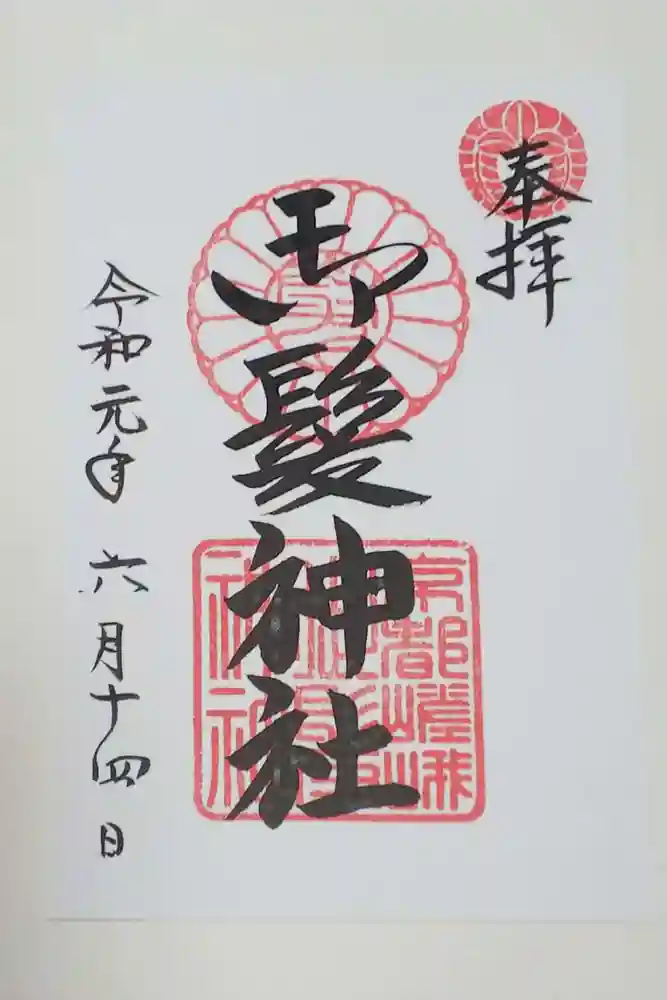 奉拝
御髪神社
京都嵯峨
神社
令和元年 六月十四日